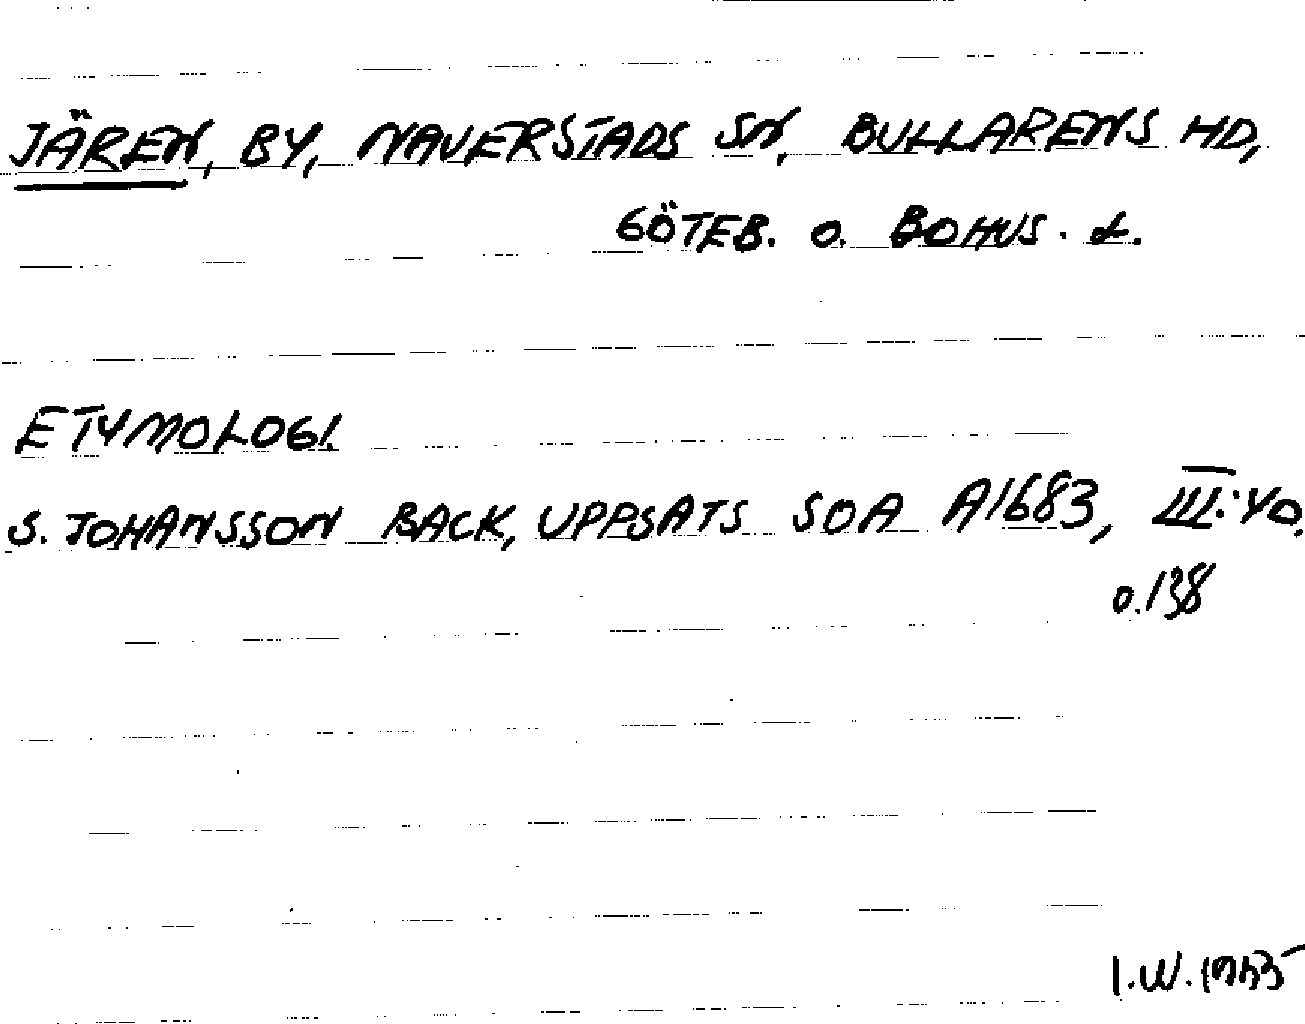 JÄREN, BY, NAVERSTADS SN, BULLARENS HD,
GÖTEB. O. BOHUS. L.
ETYMOLOGI.
S. JOHANSSON BACK, UPPSATS SOA A1683, III:40,
o. 138
I.W.